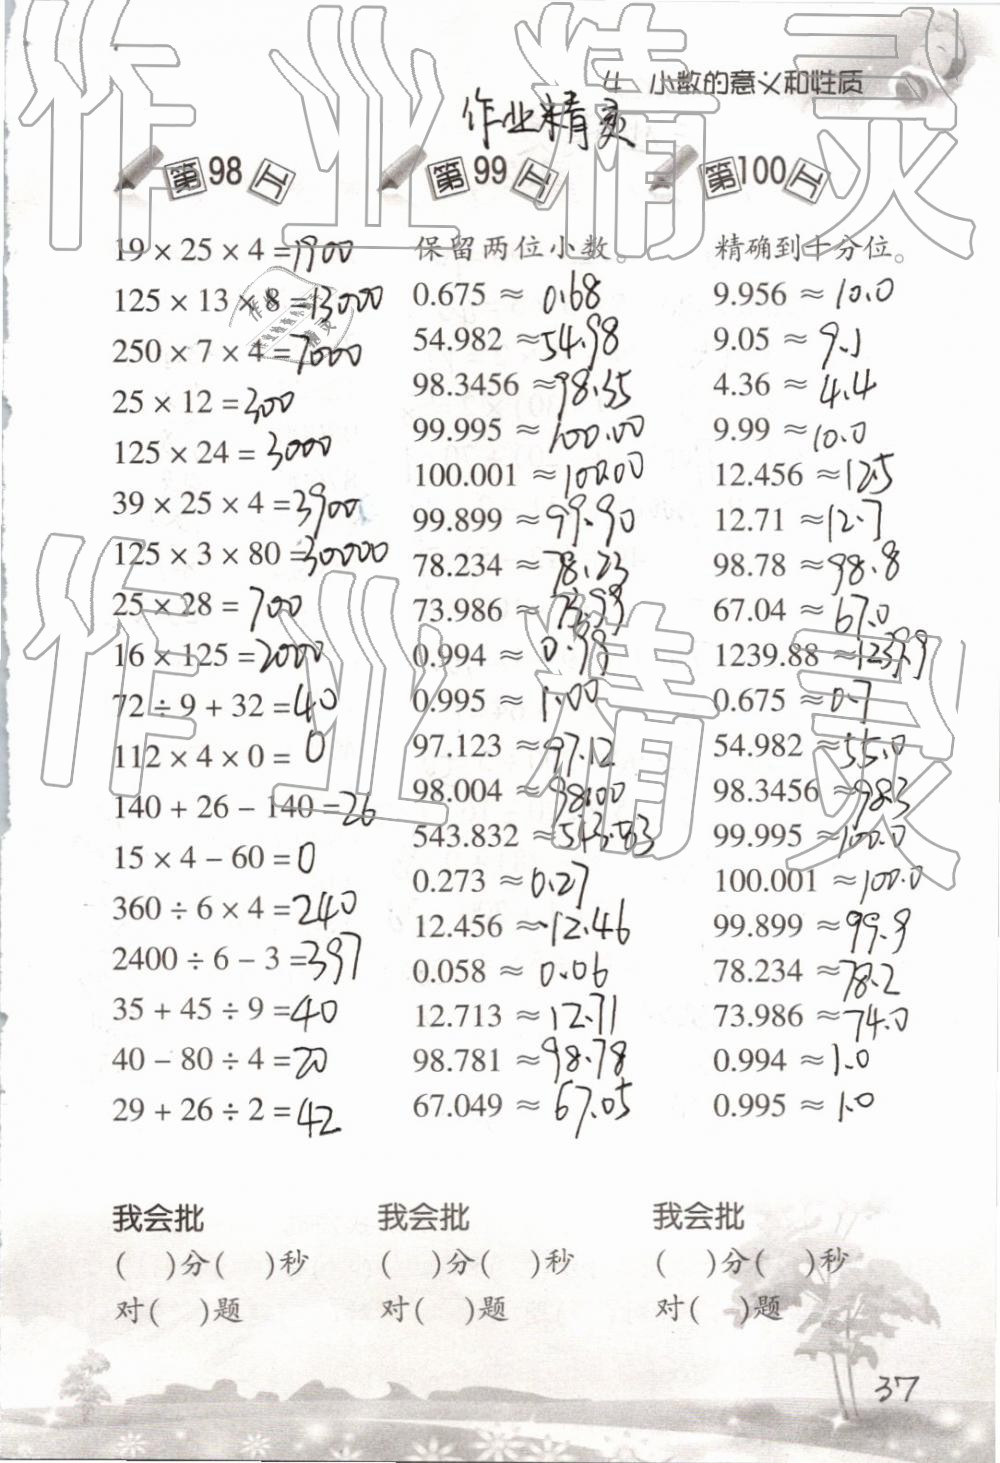 作业精灵
4 小数的意义和性质
作业精灵
第98页
19 × 25 × 4 =1900
125 × 13 × 8 =13000
250 × 7 × 4 =7000
25 × 12 =300
125 × 24 = 3000
39 × 25 × 4 =3900
125 × 3 × 80 =30000
25 × 28 = 700
16 × 125 =2000
72 ÷ 9 + 32 =40
112 × 4 × 0 = 0
140 + 26 − 140 =26
15 × 4 − 60 =0
360 ÷ 6 × 4 =240
2400 ÷ 6 − 3 =397
35 + 45 ÷ 9 =40
40 − 80 ÷ 4 =20
29 + 26 ÷ 2 =42
我会批
( )分( )秒
对( )题
第99页
保留两位小数。
0.675 ≈ 0.68
54.982 ≈54.98
98.3456 ≈98.35
99.995 ≈100.00
100.001 ≈100.00
99.899 ≈99.90
78.234 ≈78.23
73.986 ≈73.99
0.994 ≈ 0.99
0.995 ≈ 1.00
97.123 ≈97.12
98.004 ≈98.00
543.832 ≈543.83
0.273 ≈0.27
12.456 ≈12.46
0.058 ≈ 0.06
12.713 ≈12.71
98.781 ≈98.78
67.049 ≈ 67.05
我会批
( )分( )秒
对( )题
第100页
精确到十分位。
9.956 ≈10.0
9.05 ≈ 9.1
4.36 ≈ 4.4
9.99 ≈10.0
12.456 ≈12.5
12.71 ≈12.7
98.78 ≈98.8
67.04 ≈ 67.0
1239.88 ≈1239.9
0.675 ≈0.7
54.982 ≈55.0
98.3456 ≈98.3
99.995 ≈100.0
100.001 ≈100.0
99.899 ≈99.9
78.234 ≈78.2
73.986 ≈74.0
0.994 ≈1.0
0.995 ≈ 1.0
我会批
( )分( )秒
对( )题
37
作业精灵